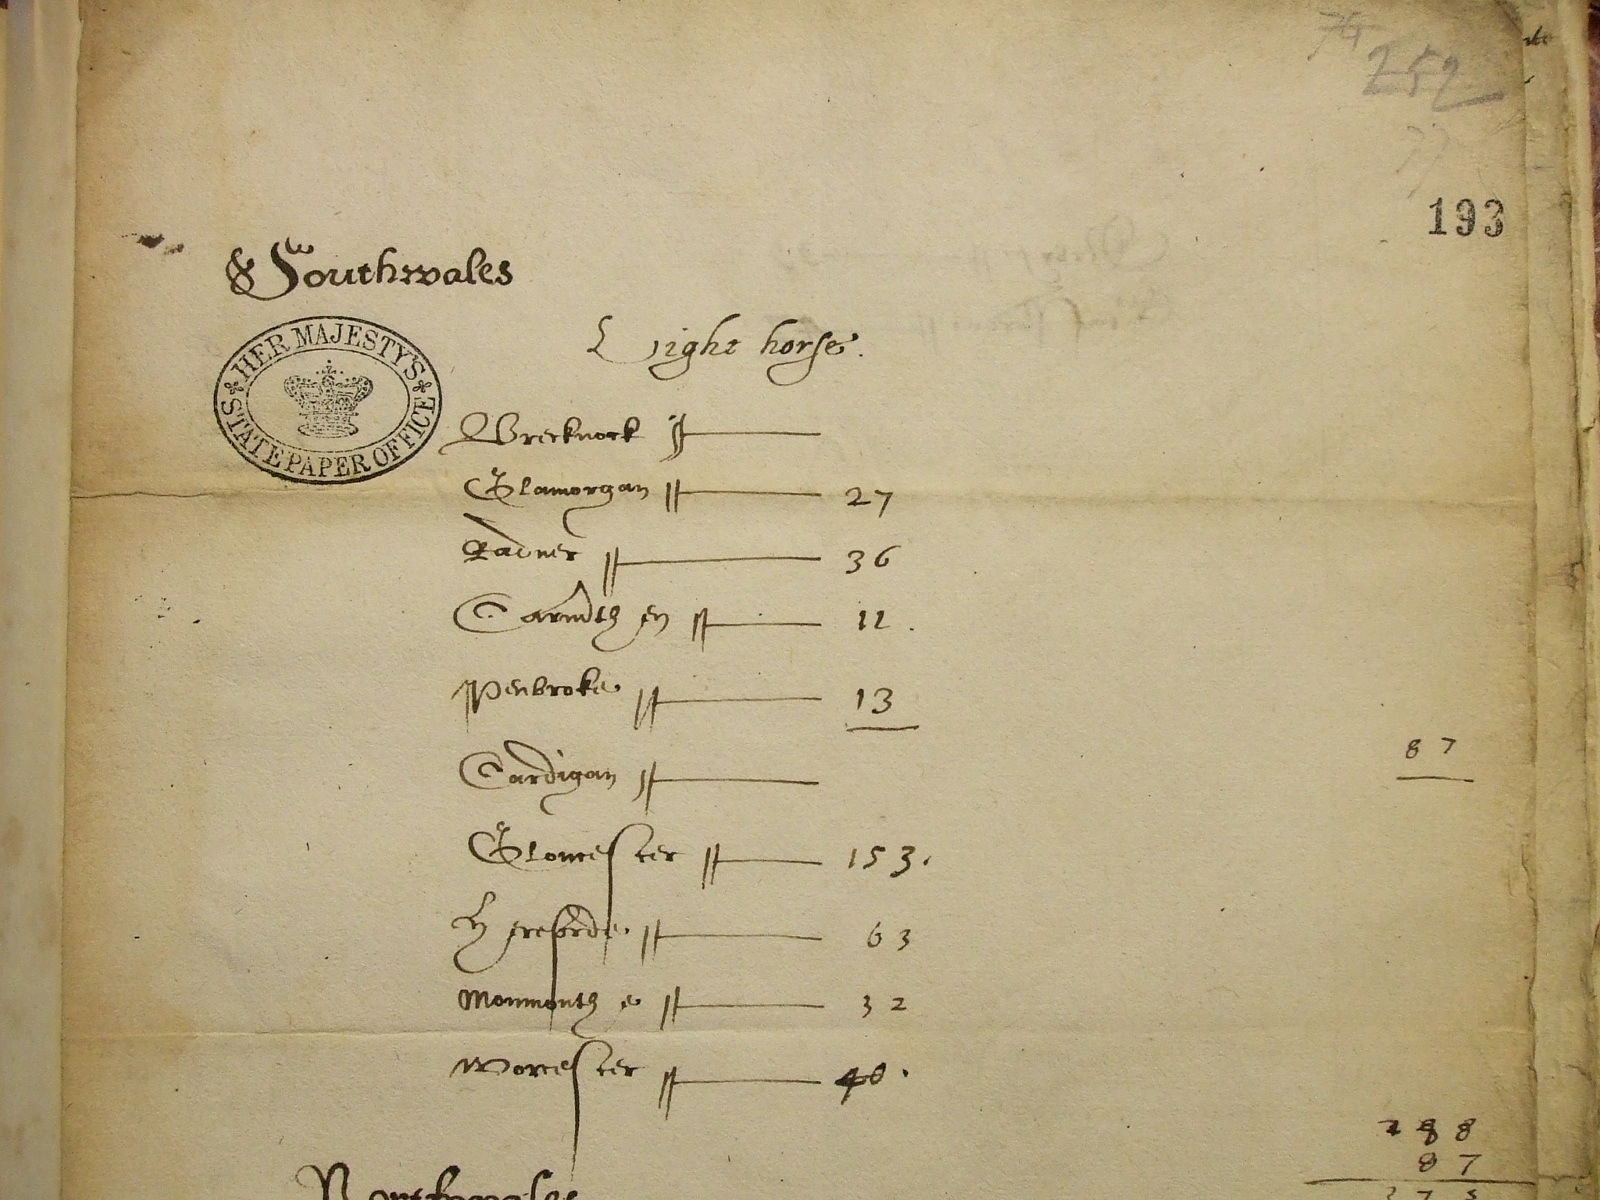 252
193
& Southwales
HER MAJESTY'S STATE PAPER OFFICE
Light horse.
Brecknock
Glamorgan 27
Radner 36
Carmthen 11.
Penbroke 13
87
Cardigan
Glocester 153.
Hereforde 63
Monmouthe 32
Worcester 40.
288
87
375
Northwales